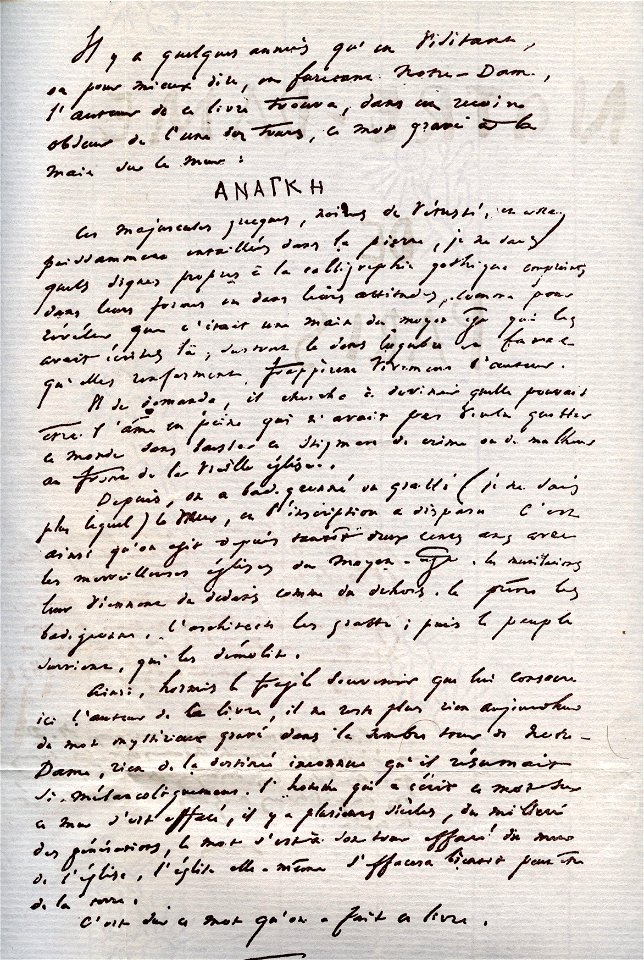 Il y a quelques années qu'en visitant,
ou pour mieux dire, en furetant Notre-Dame,
l'auteur de ce livre trouva, dans un recoin
obscur de l'une des tours, ce mot gravé à la
main sur le mur :
ΑΝΑΓΚΗ
Ces majuscules grecques, noires de vétusté, et assez
puissamment entaillées dans la pierre, je ne sais
quels signes propres à la calligraphie gothique empreints
dans leurs formes et dans leurs attitudes, comme pour
révéler que c'était une main du moyen âge qui les
avait écrites là, surtout le sens lugubre et fatal
qu'elles renferment, frappèrent vivement l'auteur.
Il se demanda, il chercha à deviner quelle pouvait
être l'âme en peine qui n'avait pas voulu quitter
ce monde sans laisser ce stigmate de crime ou de malheur
au front de la vieille église.
Depuis, on a badigeonné ou gratté (je ne sais
plus lequel) le mur, et l'inscription a disparu. C'est
ainsi qu'on agit depuis tantôt deux cents ans avec
les merveilleuses églises du moyen-âge. Les mutilations
leur viennent de dedans comme du dehors. Le prêtre les
badigeonne, l'architecte les gratte ; puis le peuple
survient, qui les démolit.
Ainsi, hormis le fragile souvenir que lui consacre
ici l'auteur de ce livre, il ne reste plus rien aujourd'hui
du mot mystérieux gravé dans la sombre tour de Notre-
Dame, rien de la destinée inconnue qu'il résumait
si mélancoliquement. L'homme qui a écrit ce mot sur
ce mur s'est effacé, il y a plusieurs siècles, du milieu
des générations, le mot s'est à son tour effacé du mur
de l'église, l'église elle-même s'effacera bientôt peut-être
de la terre.
C'est sur ce mot qu'on a fait ce livre.